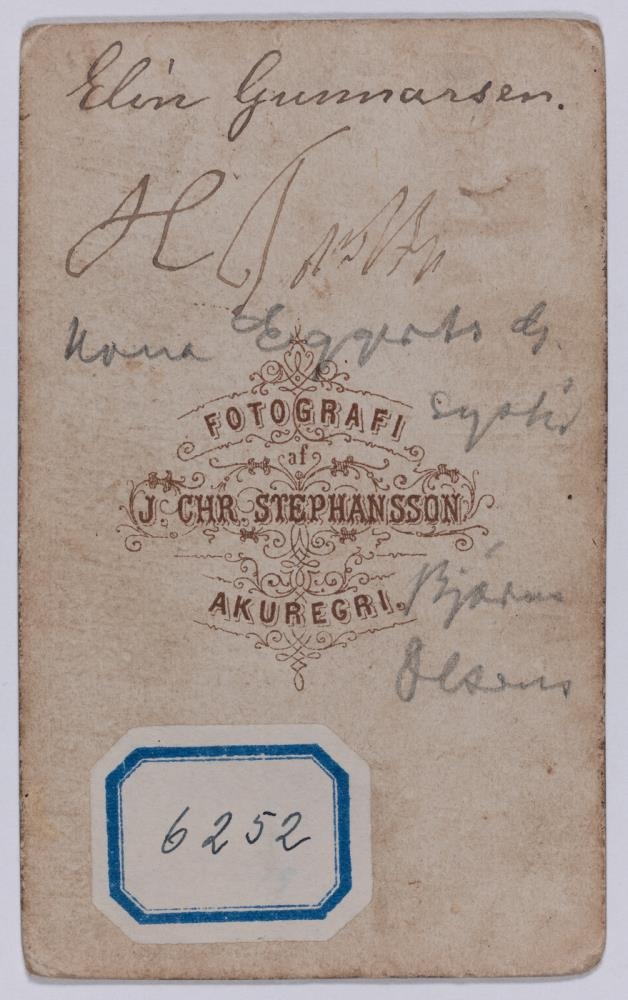 Elín Gunnarsen.
kona Eggerts G.
systir
FOTOGRAFI
af
J. CHR. STEPHANSSON
AKUREGRI.
Björns
Olsens
6252